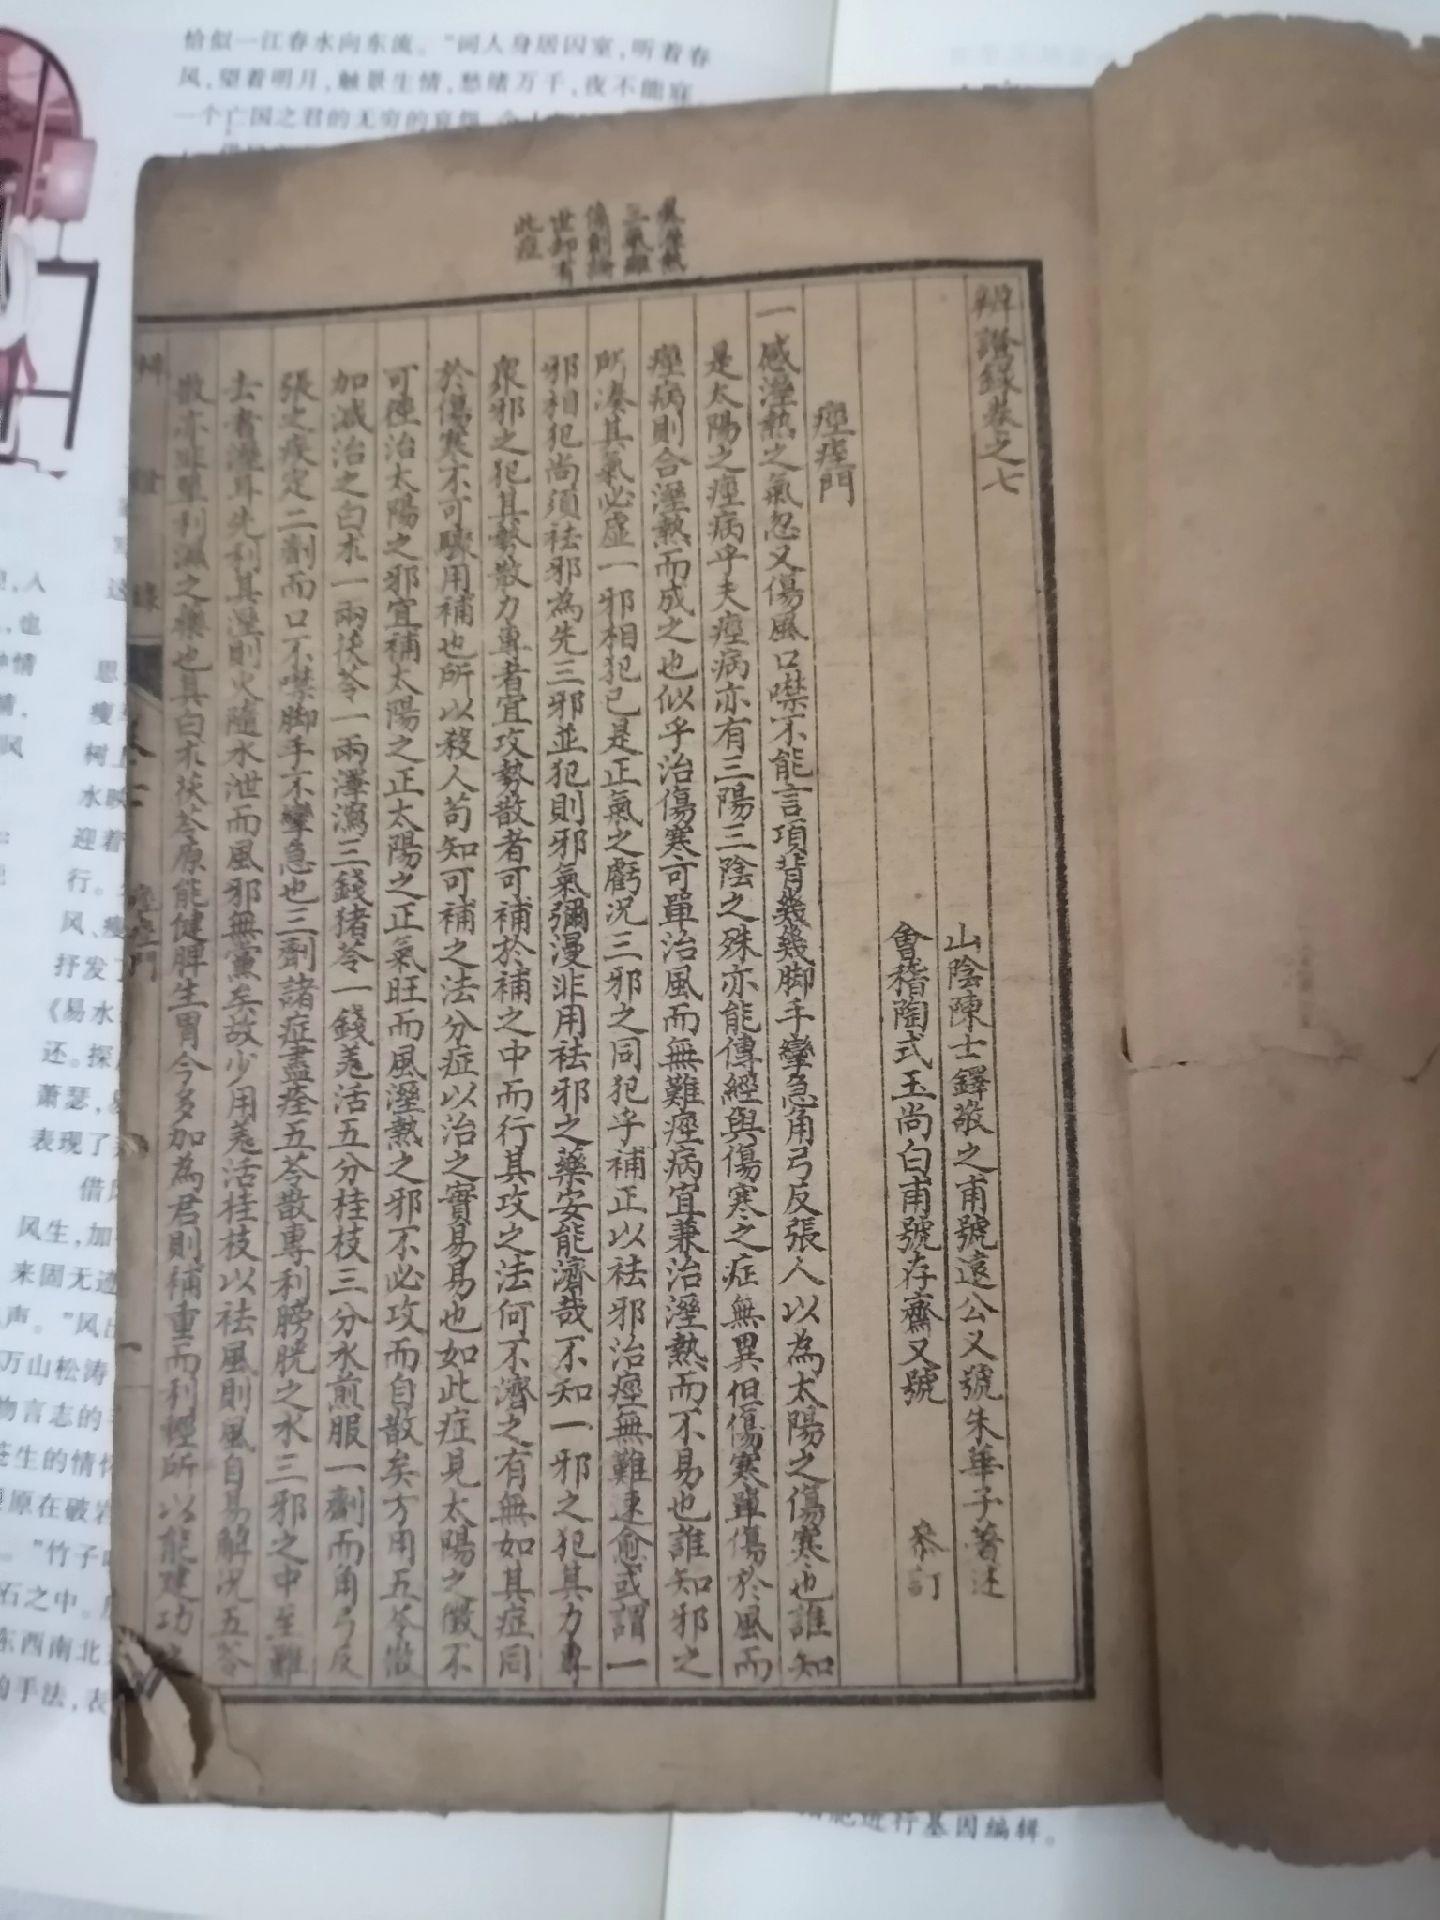 辨證錄卷之七
山陰陳士鐸敬之甫號遠公又號朱華子著述
會稽陶式玉尚白甫號存齋又號 叅訂
痙痓門
一感溼熱之氣忽又傷風口噤不能言項背幾幾脚手攣急角弓反張人以為太陽之傷寒也誰知
是太陽之痙病乎夫痙病亦有三陽三陰之殊亦能傳經與傷寒之症無異但傷寒單傷於風而
痙病則合溼熱而成之也似乎治傷寒可單治風而無難痙病宜兼治溼熱而不易也誰知邪之
所湊其氣必虛一邪相犯已是正氣之虧况三邪之同犯乎補正以祛邪治痙無難速愈或謂一
邪相犯尚須祛邪為先三邪並犯則邪氣彌漫非用祛邪之藥安能濟哉不知一邪之犯其力專
衆邪之犯其勢散力專者宜攻勢散者可補於補之中而行其攻之法何不濟之有無如其症同
於傷寒不可驟用補也所以殺人苟知可補之法分症以治之實易易也如此症見太陽之徵不
可徑治太陽之邪宜補太陽之正太陽之正氣旺而風溼熱之邪不必攻而自散矣方用五苓散
加減治之白朮一兩茯苓一兩澤瀉三錢猪苓一錢羗活五分桂枝三分水煎服一劑而角弓反
張之疾定二劑而口不噤脚手不攣急也三劑諸症盡痊五苓散專利膀胱之水三邪之中至難
去者溼耳先利其溼則火隨水泄而風邪無黨矣故少用羗活桂枝以祛風則風自易解况五苓
散亦非單利濕之藥也其白朮茯苓原能健脾生胃今多加為君則補重而利輕所以能建功
三氣雖
世却有
此症
恰似一江春水向东流。"词人身居囚室,听着春
风,望着明月,触景生情,愁绪万千,夜不能寐
一个亡国之君的无穷的哀怨
人
也
情
风
思
瘦
树
水
迎着
行。
风、瘦
抒发了
《易水
还。探
萧瑟,
表现了
借
风生,加
来固无
声。"风
万山松涛
物言志的
苍生的情怀
原在破岩
。"竹子
石之中。
东西南北
的手法,表
胞进行基因编辑。